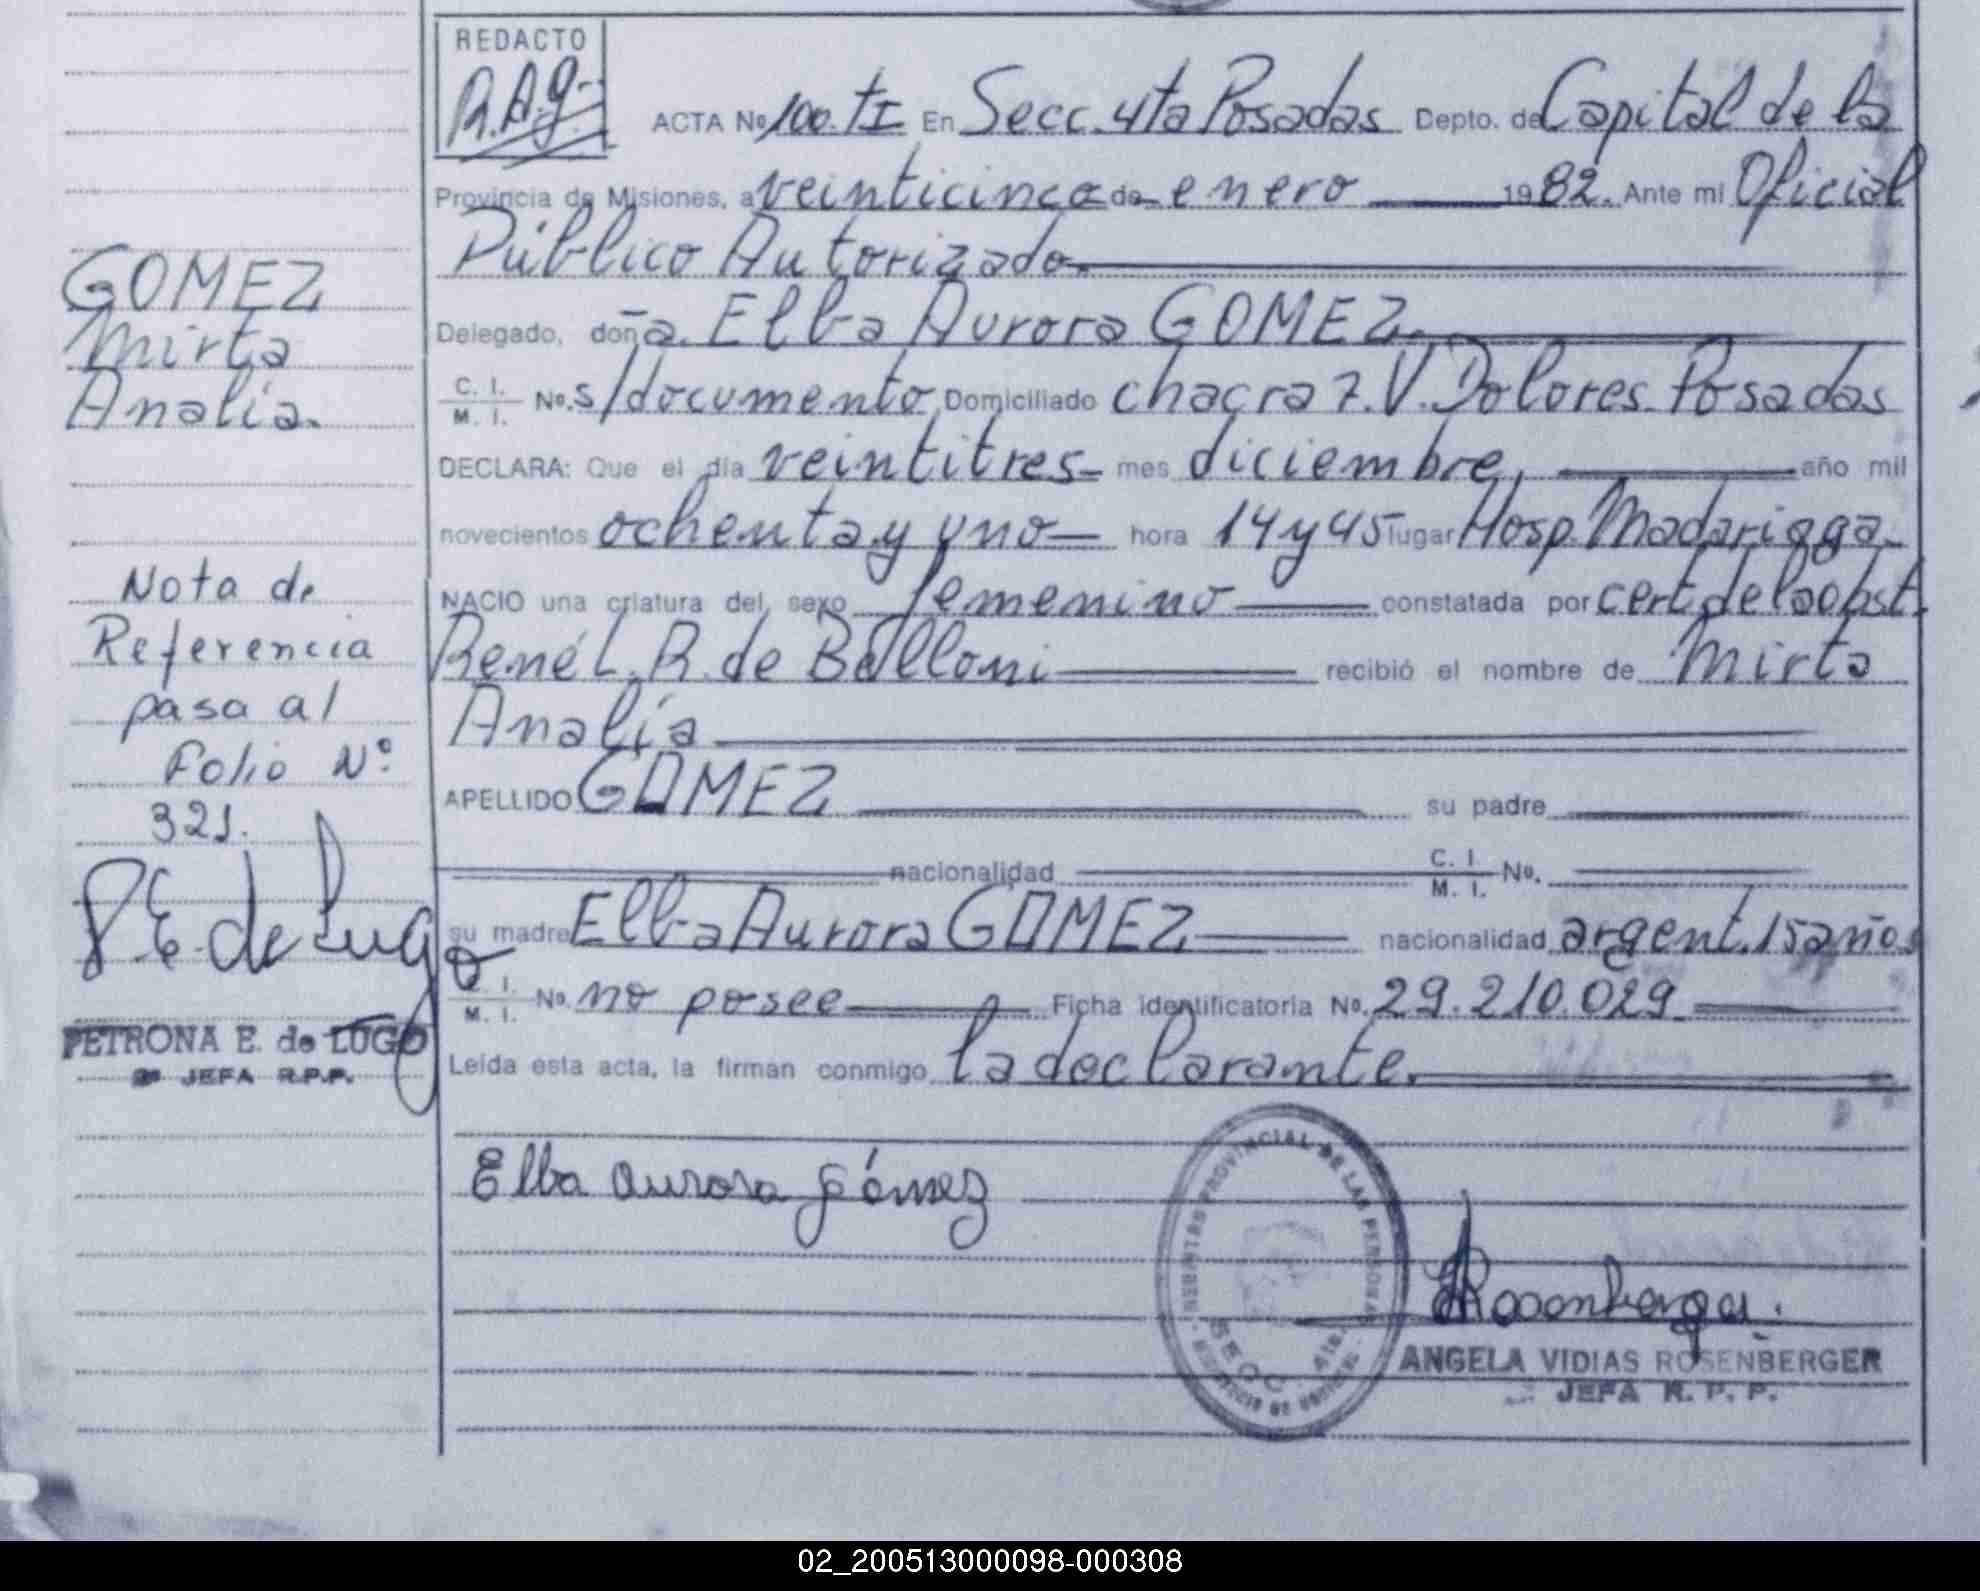 GOMEZ
Mirta
Analía.
Nota de
Referencia
pasa al
Folio Nº
321.
P E. de Lugo
PETRONA E. de LUGO
2ª JEFA R.P.P.
REDACTO
R.A.g.
ACTA Nº 100. tI En Secc. 4ta Posadas Depto. de Capital de la
Provincia de Misiones, a veinticinco de enero 1982. Ante mi Oficial
Público Autorizado.
Delegado, doña. Elba Aurora GOMEZ.
C. I.
M. I. Nº. s/documento Domiciliado chacra 7. V. Dolores. Posadas
DECLARA: Que el día veintitres mes diciembre, año mil
novecientos ochenta y uno hora 14 y 45 lugar Hosp. Madariaga
NACIO una criatura del sexo femenino constatada por cert. de la obst.
René L. R. de Balloni recibió el nombre de Mirta
Analía
APELLIDO GOMEZ su padre
nacionalidad C. I.
M. I. Nº.
su madre Elba Aurora GOMEZ nacionalidad argent. 15 años
C. I.
M. I. Nº. no posee Ficha identificatoria Nº. 29.210.029
Leída esta acta, la firman conmigo la declarante.
Elba Aurora Gómez
PROVINCIAL DE LAS PERSONAS
SECC. 4ta.
Rosenberger.
ANGELA VIDIAS ROSENBERGER
JEFA R. P. P.
02_200513000098-000308